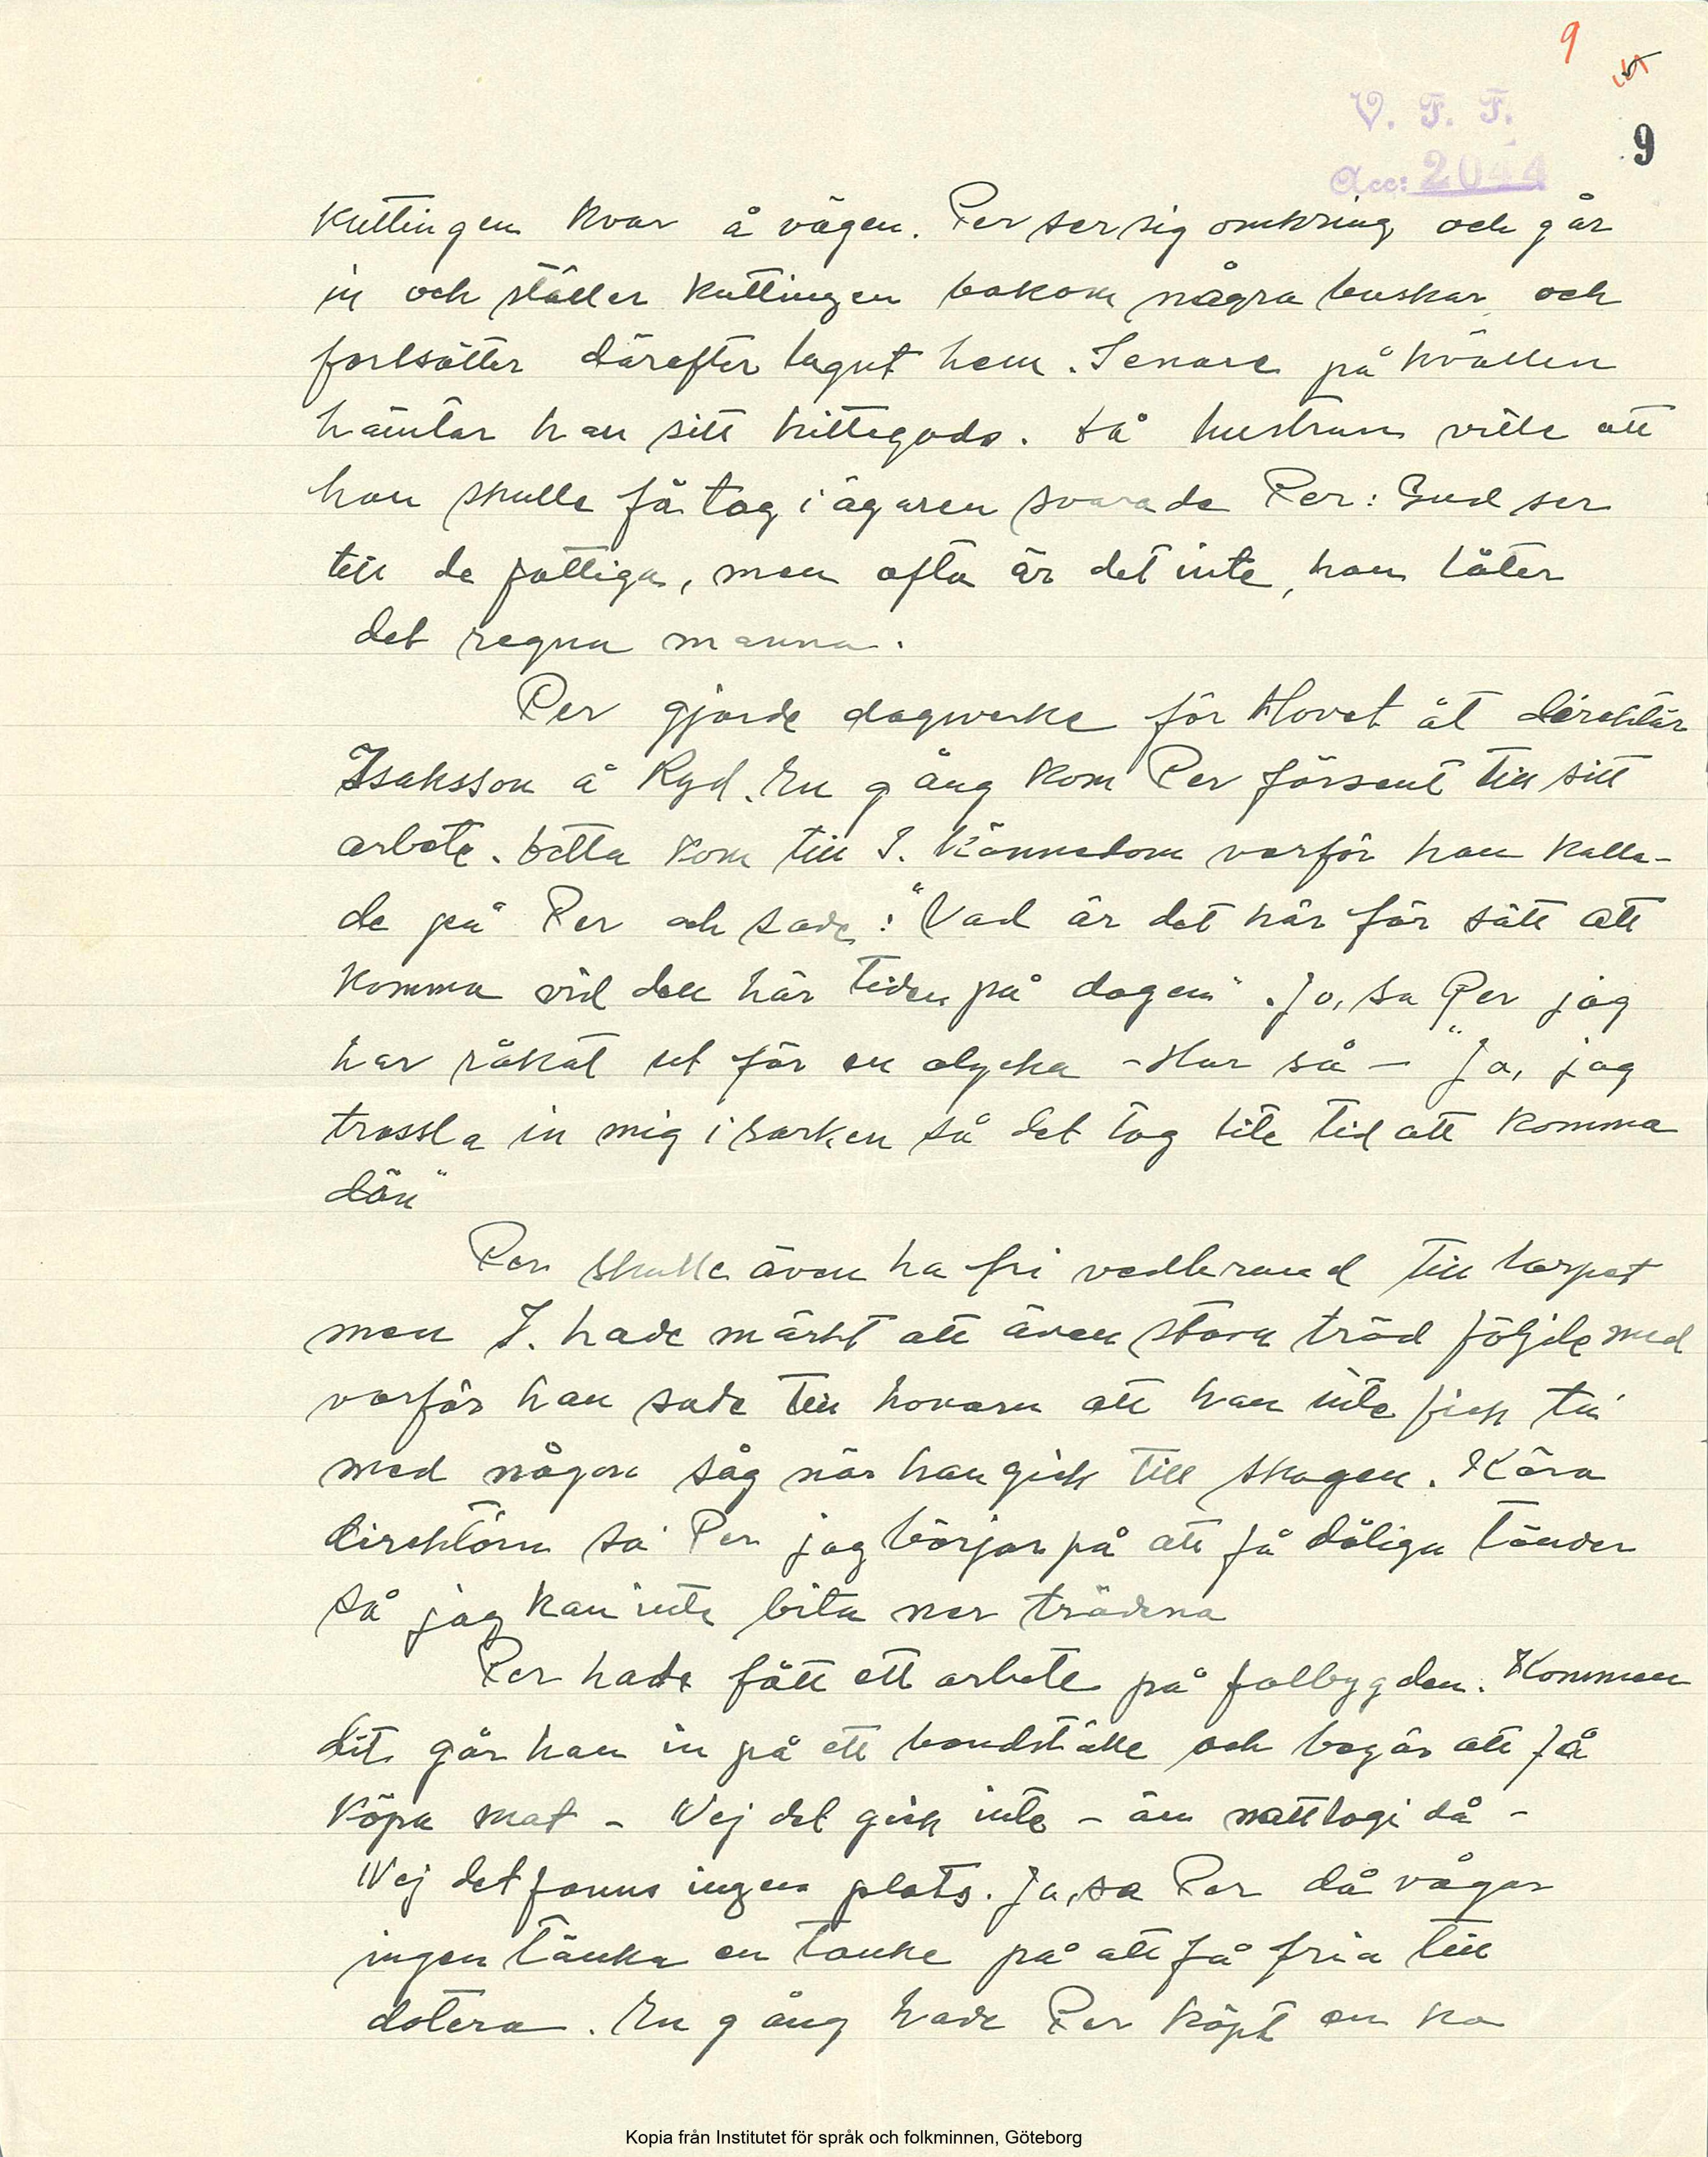 9
V. F. F.
9
Acc: 2044
kuttingen kvar å vägen. Per ser sig omkring och går
in och ställer kuttingen bakom några buskar och
fortsätter därefter lugnt hem. Senare på kvällen
hämtar han sitt hittegods. Då hustrun ville att
han skulle få tag i ägaren svarade Per: Gud ser
till de fattiga, men ofta är det inte, han låter
det regna manna.
Per gjorde dagsverke för Hovet åt direktör
Isaksson å Ryd. En gång kom Per försent till sitt
arbete. Detta kom till I. kännedom varför han kalla-
de på Per och sade: "Vad är det här för sätt att
komma vid den här tiden på dagen". Jo, sa Per jag
har råkat ut för en olycka - Hur så - "Ja, jag
trassla in mig i särken så det tog lite tid att komma
dän"
Per skulle även ha fri vedbrand till torpet
men I. hade märkt att även stora träd följde med
varför han sade till honom att han inte fick ta
med någon såg när han gick till skogen. Kära
direktörn sa Per jag börjar på att få dåliga tänder
så jag kan inte bita ner träderna
Per hade fått ett arbete på falbygden. Kommen
dit går han in på ett bondställe och begär att få
köpa mat - Nej det gick inte - än nattlogi då -
Nej det fanns ingen plats. Ja, sa Per då vågar
ingen tänka en tanke på att få fria till
dotera. En gång hade Per köpt en ko
Kopia från Institutet för språk och folkminnen, Göteborg